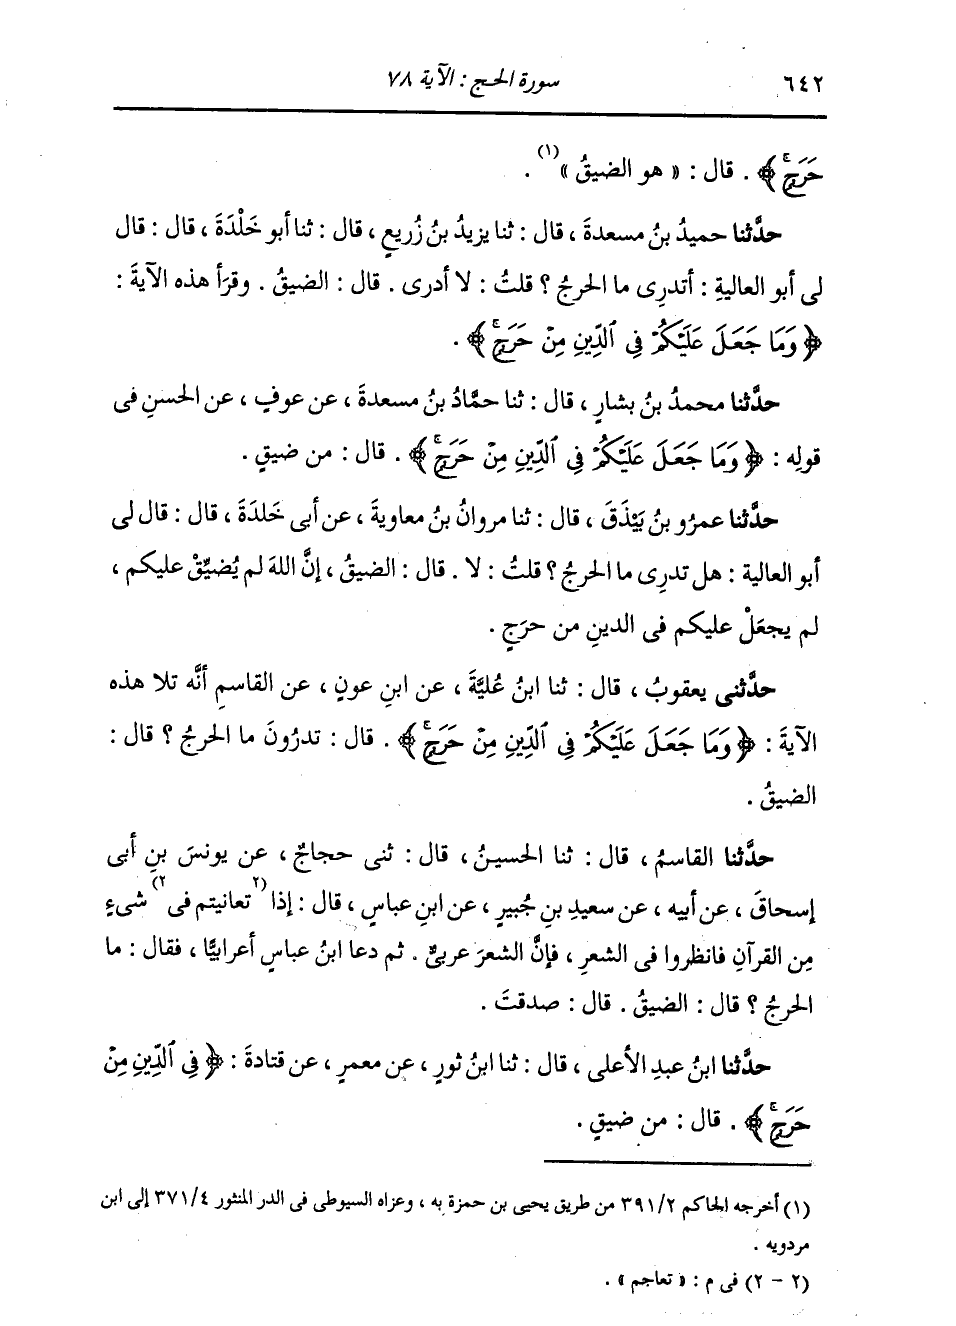 ٦٤٢ سورة الحج : الآية ٧٨
حَرَجٍ ﴾ . قال : « هو الضيقُ »(١) .
حدَّثنا حميدُ بنُ مسعدةَ ، قال : ثنا يزيدُ بنُ زُريعٍ ، قال : ثنا أبو خَلْدَةَ ، قال : قال
لى أبو العاليةِ : أتدرِى ما الحرجُ ؟ قلتُ : لا أدرى . قال : الضيقُ . وقرَأ هذه الآيةَ :
﴿ وَمَا جَعَلَ عَلَيْكُمْ فِي ٱلدِّينِ مِنْ حَرَجٍ ﴾ .
حدَّثنا محمدُ بنُ بشارٍ ، قال : ثنا حمَّادُ بنُ مسعدةَ ، عن عوفٍ ، عن الحسنِ فى
قولِه : ﴿ وَمَا جَعَلَ عَلَيْكُمْ فِي ٱلدِّينِ مِنْ حَرَجٍ ﴾ . قال : من ضيقٍ .
حدَّثنا عمرُو بنُ بَيْذَقَ ، قال : ثنا مروانُ بنُ معاويةَ ، عن أبى خَلدَةَ ، قال : قال لى
أبو العالية : هل تدرِى ما الحرجُ ؟ قلتُ : لا . قال : الضيقُ ، إنَّ اللهَ لم يُضيِّقْ عليكم ،
لم يجعَلْ عليكم فى الدينِ من حرَجٍ .
حدَّثنى يعقوبُ ، قال : ثنا ابنُ عُليَّةَ ، عن ابنِ عونٍ ، عن القاسمِ أنَّه تلا هذه
الآيةَ : ﴿ وَمَا جَعَلَ عَلَيْكُمْ فِي ٱلدِّينِ مِنْ حَرَجٍ ﴾ . قال : تدرُونَ ما الحرجُ ؟ قال :
الضيقُ .
حدَّثنا القاسمُ ، قال : ثنا الحسينُ ، قال : ثنى حجاجٌ ، عن يونسَ بنِ أبى
إسحاقَ ، عن أبيه ، عن سعيدِ بنِ جُبيرٍ ، عن ابنِ عباسٍ ، قال : إذا (٢تعانيتم فى٢) شىءٍ
مِن القرآنِ فانظروا فى الشعرِ ، فإنَّ الشعرَ عربىٌّ . ثم دعا ابنُ عباسٍ أعرابيًّا ، فقال : ما
الحرجُ ؟ قال : الضيقُ . قال : صدقتَ .
حدَّثنا ابنُ عبدِ الأعلى ، قال : ثنا ابنُ ثورٍ ، عن معمرٍ ، عن قتادةَ : ﴿ فِي ٱلدِّينِ مِنْ
حَرَجٍ ﴾ . قال : من ضيقٍ .
(١) أخرجه الحاكم ٣٩١/٢ من طريق يحيى بن حمزة به ، وعزاه السيوطى فى الدر المنثور ٣٧١/٤ إلى ابن
مردويه .
(٢ - ٢) فى م : « تعاجم » .